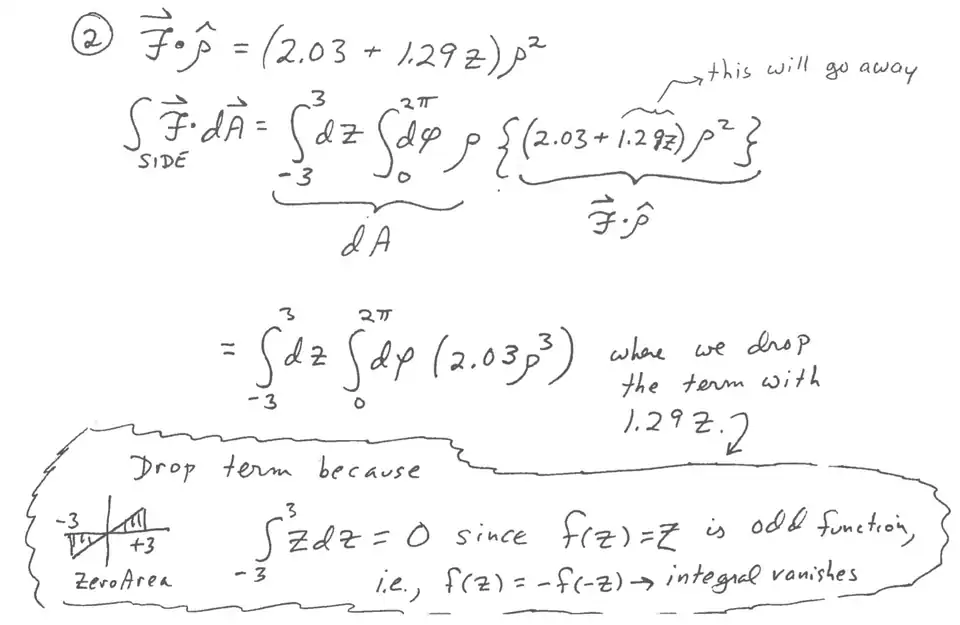 ② F⃗·ρ̂ = (2.03 + 1.29z)ρ²
this will go away
∫ F⃗·dA⃗ = ∫₋₃³ dz ∫₀^2π dφ ρ {(2.03 + 1.29z)ρ²}
SIDE
dA
F⃗·ρ̂
= ∫₋₃³ dz ∫₀^2π dφ (2.03ρ³) where we drop
the term with
1.29z.
Drop term because
-3
+3
Zero Area
∫₋₃³ zdz = 0 since f(z)=z is odd function,
i.e., f(z) = -f(-z) → integral vanishes